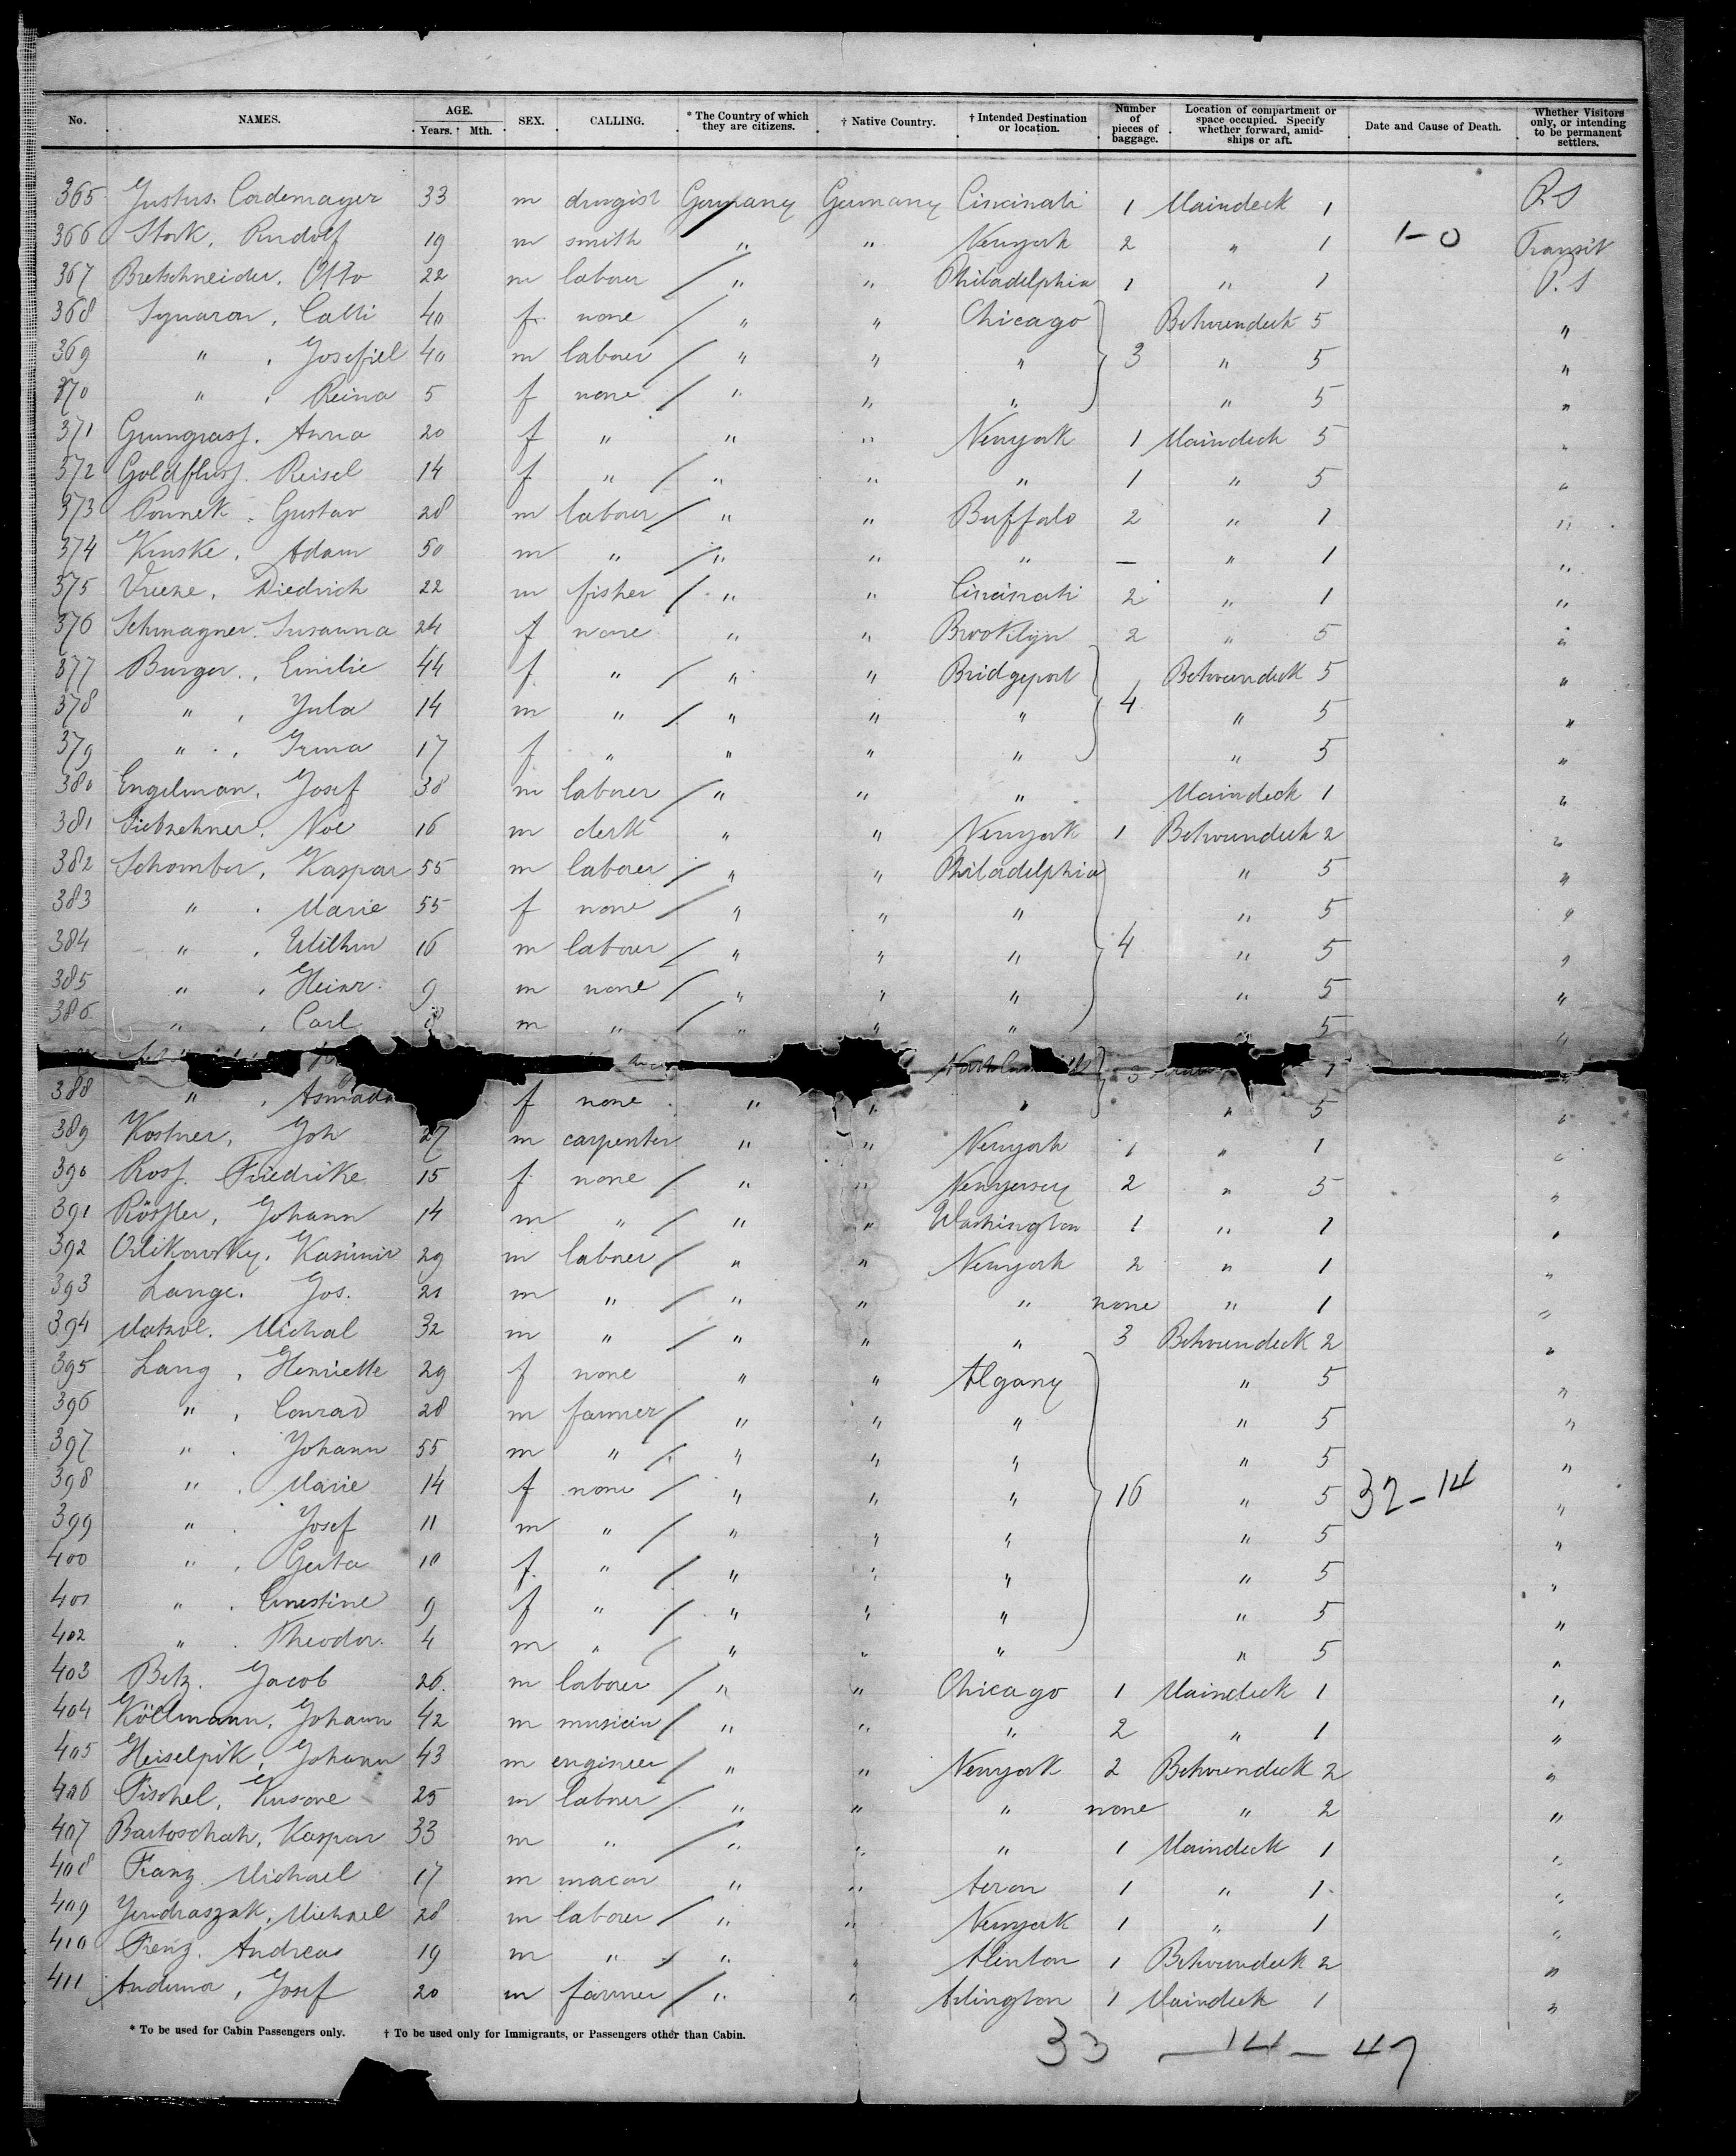 No. NAMES. AGE. Years. Mth. SEX. CALLING. * The Country of which they are citizens. † Native Country. † Intended Destination or location. Number of pieces of baggage. Location of compartment or space occupied. Specify whether forward, amidships or aft. Date and Cause of Death. Whether Visitors only, or intending to be permanent settlers.
365 Justus. Cordemayer 33 m drugist Germany Germany Cincinati 1 Maindeck 1 P.S
366 Stork, Rudolf 19 m smith " " Newyork 2 " 1 1-0 Transit
367 Bretschneider, Otto 22 m laborer / " " Philadelphia 1 " 1 P.S
368 Calli 40 f none / " " Chicago Betweendeck 5 "
369 " , Josefiel 40 m laborer / " " " 3 " 5 "
370 " , Reina 5 f none / " " " " 5 "
371 Anna 20 f " " " Newyork 1 Maindeck 5 "
372 Goldfluss. Reisel 14 f " / " " " 1 " 5 "
373 Gustav 28 m laborer / " " Buffalo 2 " 1 "
374 Kuske, Adam 50 m " / " " " — " 1 "
375 Vrieze, Diedrich 22 m fisher / " " Cincinati 2 " 1 "
376 Schwagner. Susanna 24 f none " " Brooklyn 2 " 5 "
377 Burger, Emilie 44 f " / " " Bridgeport Betweendeck 5 "
378 " , Jula 14 m " / " " " 4 " 5 "
379 " , Irma 17 f " " " " " 5 "
380 Engelman, Josef 38 m laborer / " " " Maindeck 1 "
381 Siebzehner, Noe 16 m clerk " " Newyork 1 Betweendeck 2 "
382 Schomber, Kaspar 55 m laborer / " " Philadelphia " 5 "
383 " . Marie 55 f none / " " " " 5 "
384 " , Wilhm 16 m laborer / " " " 4 " 5 "
385 " , Heinr. 9 m none / " " " " 5 "
386 " , Carl 8 m " / " " " " 5 "
388 " , f none " " " " 5 "
389 Kostner, Joh 27 m carpenter " " Newyork 1 " 1 "
390 Ross. Friedrike 15 f none / " " Newyersey 2 " 5 "
391 Rössler, Johann 14 m " / " " Washington 1 " 1 "
392 Orlikowsky. Kasimir 29 m laborer / " " Newyork 2 " 1 "
393 Lange. Jos. 21 m " / " " " none " 1 "
394 Matzol. Michal 32 m " / " " " 3 Betweendeck 2 "
395 Lang, Henriette 29 f none " " Algany " 5 "
396 " , Conrad 28 m farmer / " " " " 5 "
397 " . Johann 55 m " / " " " " 5 "
398 " . Marie 14 f none / " " " 16 " 5 32-14 "
399 " . Josef 11 m " / " " " " 5 "
400 " , Gerta 10 f " / " " " " 5 "
401 " . Ernestine 9 f " / " " " " 5 "
402 " . Theodor. 4 m " / " " " " 5 "
403 Betz. Jacob 26 m laborer / " " Chicago 1 Maindeck 1 "
404 Köllmann, Johann 42 m musicin / " " " 2 " 1 "
405 Heiselpik, Johann 43 m engineer / " " Newyork 2 Betweendeck 2 "
406 Fischel, 25 m laborer / " " " none " 2 "
407 Bartoschak, Kaspar 33 m " / " " " 1 Maindeck 1 "
408 Franz. Michael 17 m macon " " Acron 1 " 1 "
409 Jendraszak, Michael 28 m laborer / " " Newyork 1 " 1 "
410 Frenz. Andreas 19 m " / " " Alenton 1 Betweendeck 2 "
411 Anderna, Josef 20 m farmer / " " Arlington 1 Maindeck 1 "
* To be used for Cabin Passengers only. † To be used only for Immigrants, or Passengers other than Cabin.
33 — 14 — 47